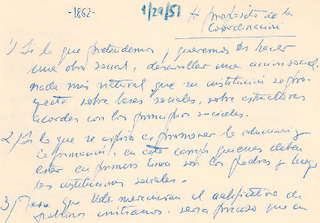 -1862-
1/29/51
A propósito de la
Coordinación
1) Si lo que pretendemos y queremos es hacer
una obra social, desarrollar una acción social
nada más natural que su institución se pro-
yecte sobre bases sociales, sobre estructuras
acordes con los principios sociales.
2) Si lo que se aspira es promover la educación y
la formación, en este campo quienes deben
estar en primera línea son los padres y luego
las instituciones sociales.
3) Para que Vds merezcan el calificativo de
cristianos, sería preciso que en